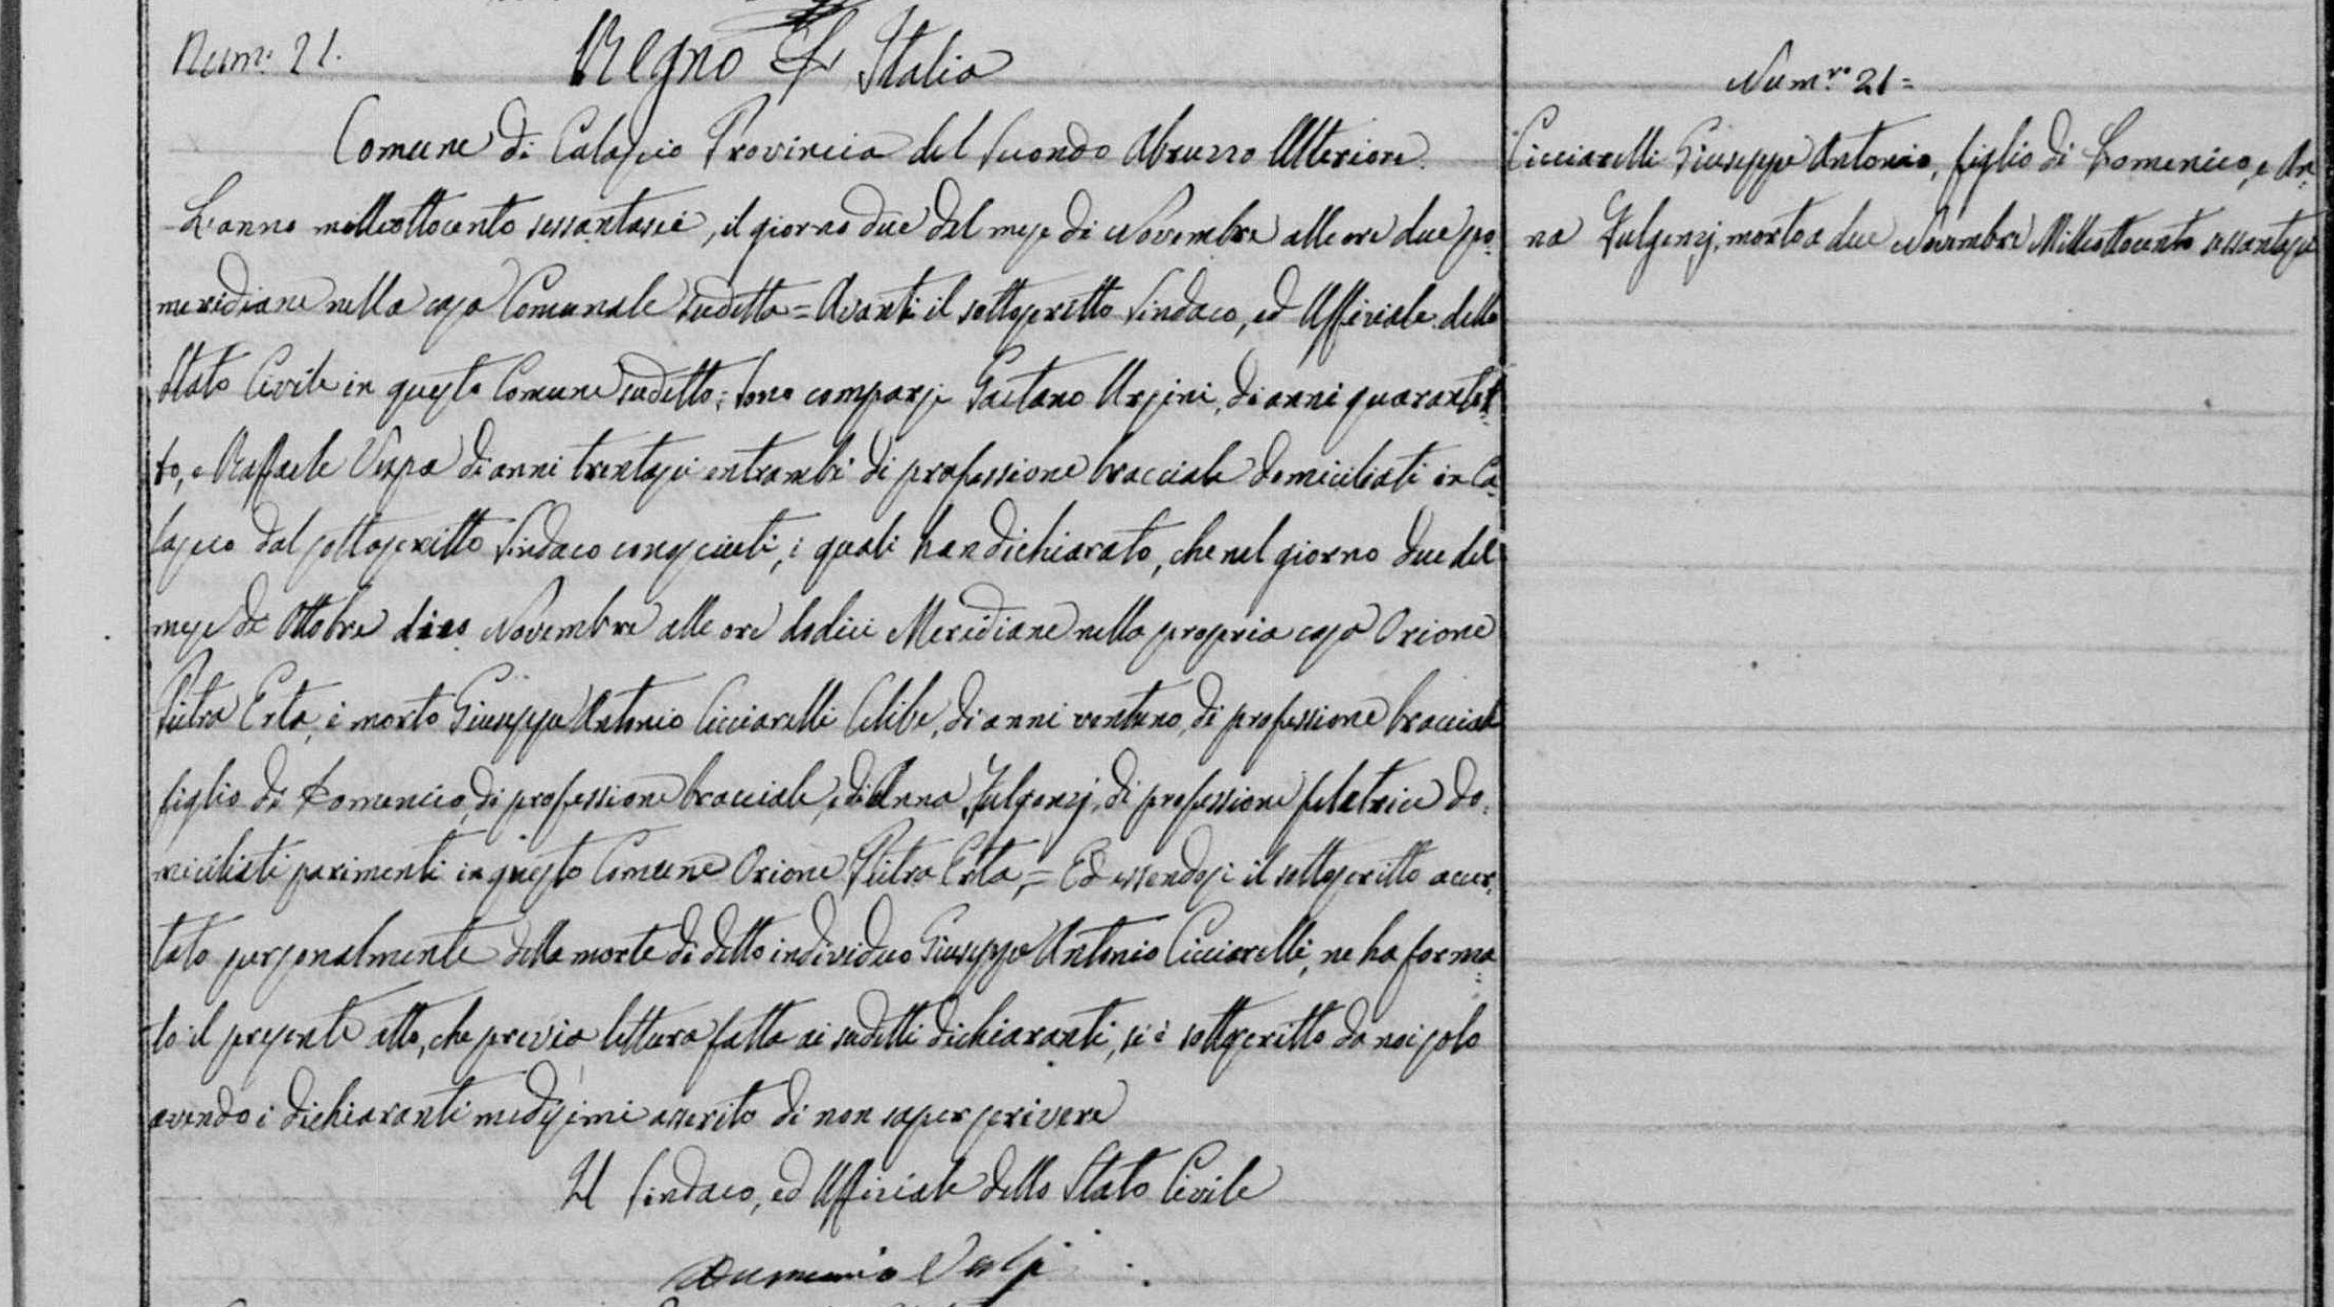 Num: 21.
Regno d' Italia
Comune di Calascio Provincia del Secondo Abruzzo Ulteriore.
L'anno milleottocento sessantasei, il giorno due del mese di Novembre alle ore due po=
meridiane nella casa Comunale sudetta = Avanti il sottoscritto Sindaco, ed Uffiziale dello
Stato Civile in questo Comune sudetto: sono comparsi Gaetano Ursini, di anni quarantot=
to, e Raffaele Vespa di anni trentasei entrambi di professione bracciale domiciliati in Ca=
lascio dal sottoscritto Sindaco conosciuti, i quali han dichiarato, che nel giorno due del
mese di Ottobre dico Novembre alle ore dodici Meridiane nella propria casa Orione
Pietra Erta, è morto Giuseppe Antonio Cicciarelli Celibe, di anni ventuno, di professione bracciale
figlio di Domenico, di professione bracciale, e di Anna Fulgenzj, di professione filatrice do=
miciliati parimenti in questo Comune Orione Pietra Erta, = Ed essendosi il sottoscritto accer=
tato personalmente della morte di detto individuo Giuseppe Antonio Cicciarelli, ne ha forma=
to il presente atto, che previa lettura fatta ai sudetti dichiaranti, si è sottoscritto da noi solo
avendo i dichiaranti medesimi asserito di non saper scrivere
Il Sindaco, ed Uffiziale dello Stato Civile
Num.ro 21=
Cicciarelli Giuseppe Antonio, figlio di Domenico, e An=
na Fulgenzj, morto a due Novembre Milleottocento sessantasei